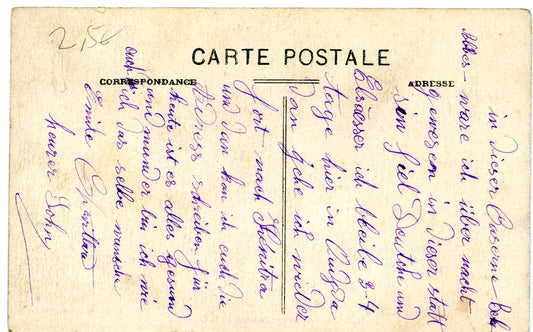 2,50
CARTE POSTALE
CORRESPONDANCE
ADRESSE
in dieser Caserne
wäre ich über nacht
gewesen in dieser statt
sin fiel Deutche und
Elsässer ich bleibe 3-4
tage hier in Oudgda
dan gehe ich wieder
fort nach
und dan kan ich euch die
Adress schreiben für
heute ist es alles gesund
und munder bin ich wie
ich das selbe wünsche
euch
Emile
heurer Sohn